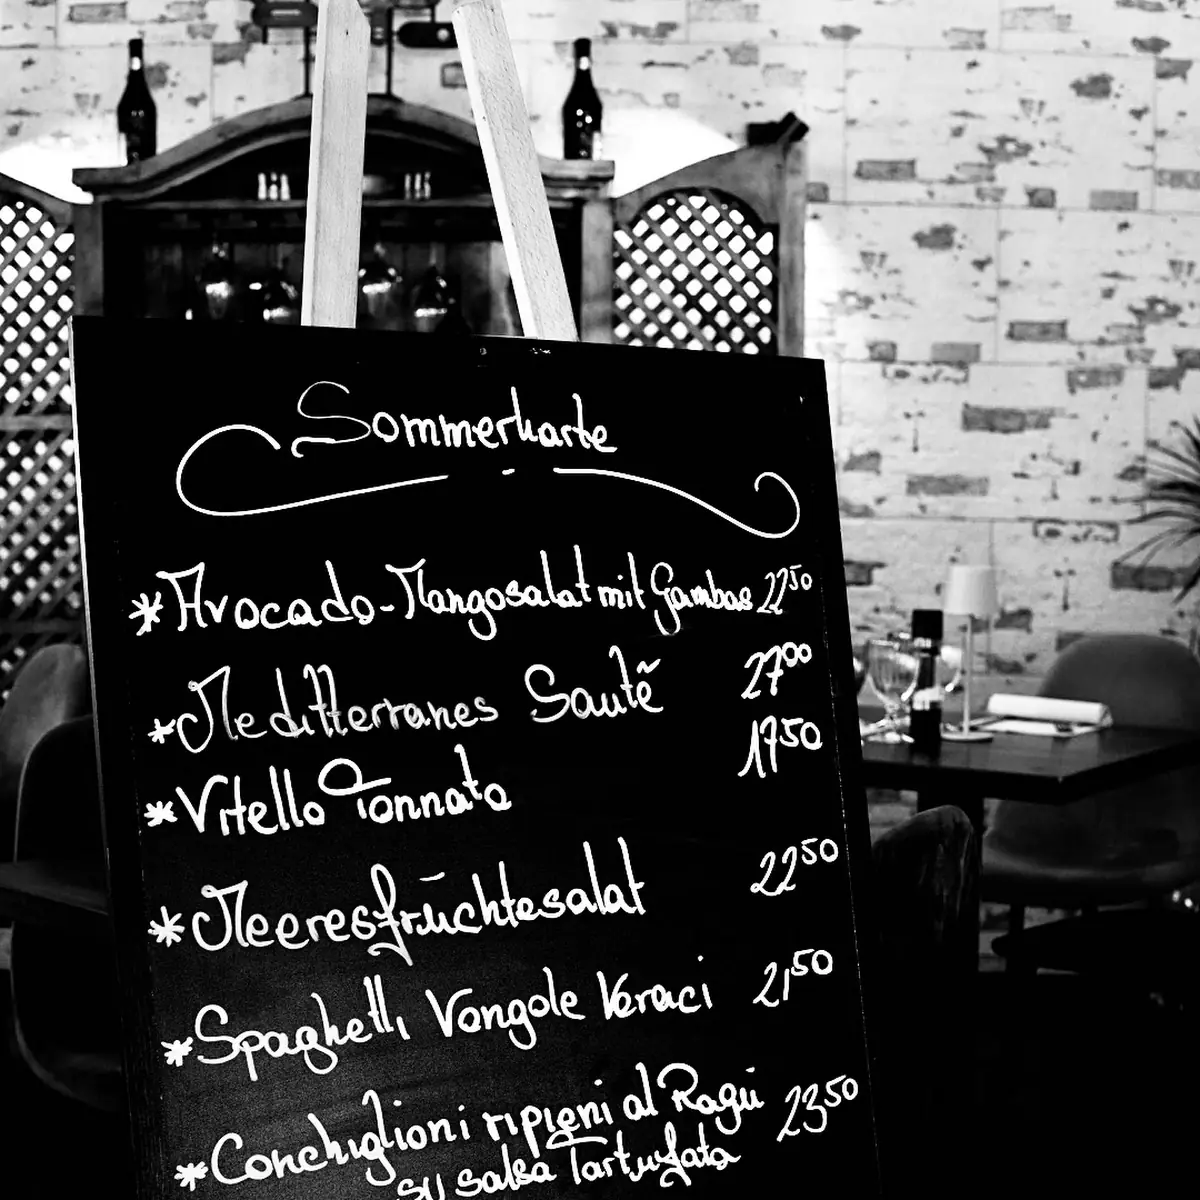 Sommerkarte
* Avocado-Mangosalat mit Gambas 22⁵⁰
* Mediterranes Sauté 27⁰⁰
* Vitello Tonnato 17⁵⁰
* Meeresfrüchtesalat 22⁵⁰
* Spaghetti Vongole Veraci 21,⁵⁰
* Conchiglioni ripieni al Ragú 23⁵⁰
su salsa Tartufata